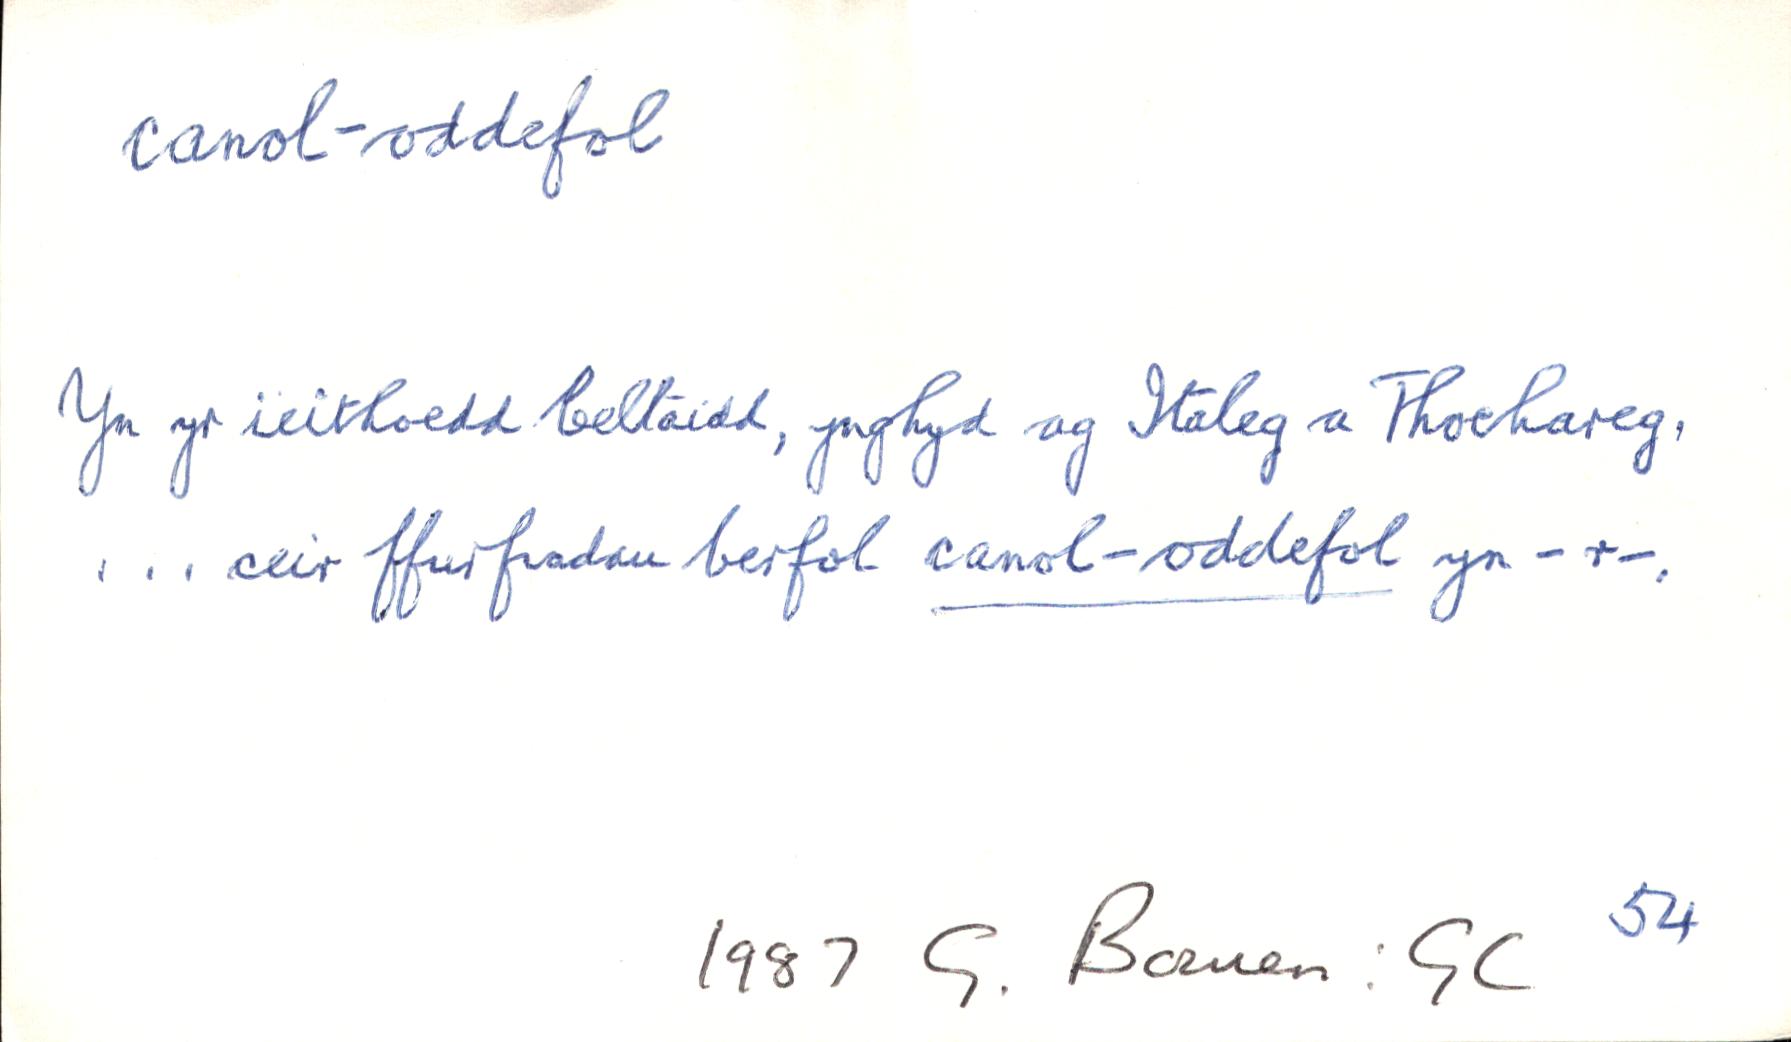 canol-oddefol
Yn yr ieithoedd Celtaidd, ynghyd ag Italeg a Thochareg,
... ceir ffurfiadau berfol canol-oddefol yn -r-.
1987 G. Bowen: GC 54